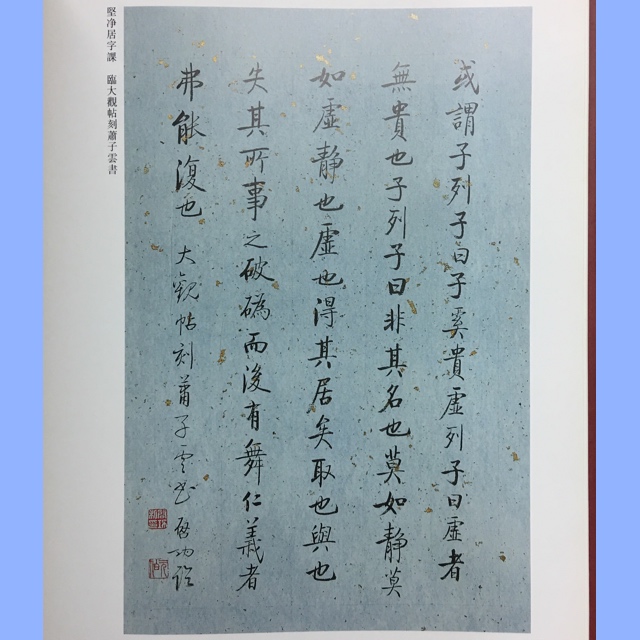 或謂子列子曰子奚貴虛列子曰虛者
無貴也子列子曰非其名也莫如静莫
如虛静也虛也得其居矣取也與也
失其所事之破䃣而後有舞仁義者
弗能復也 大觀帖刻蕭子雲書 啓功臨
堅净居字課 臨大觀帖刻蕭子雲書